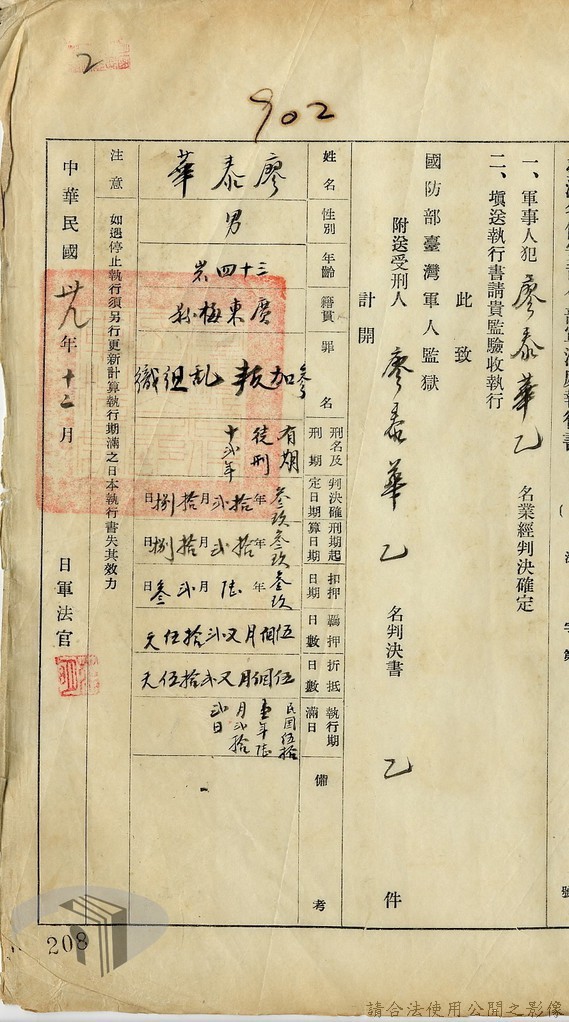 2
902
一、軍事人犯 廖泰華 乙 名業經判決確定
二、塡送執行書請貴監驗收執行
此致
國防部臺灣軍人監獄
附送受刑人 廖泰華 乙 名判決書 乙 件
計開
姓名 廖泰華
性別 男
年齡 三十四岁
籍貫 廣東梅縣
罪名 參加叛乱組織
刑名及刑期 有期徒刑十弍年
判決確定日期 叁玖年拾弍月拾捌日
刑期起算日期 叁玖年拾弍月拾捌日
扣押日期 叁玖年陆月弍叁日
羈押日數 伍個月又弍拾伍天
折抵日數 伍個月又弍拾伍天
執行期滿日 民國伍拾壹年陆月弍拾弍日
備考
注意 如遇停止執行須另行更新計算執行期滿之日本執行書失其效力
中華民國 卅九 年 十二 月 日軍法官
208
請合法使用公開之影像